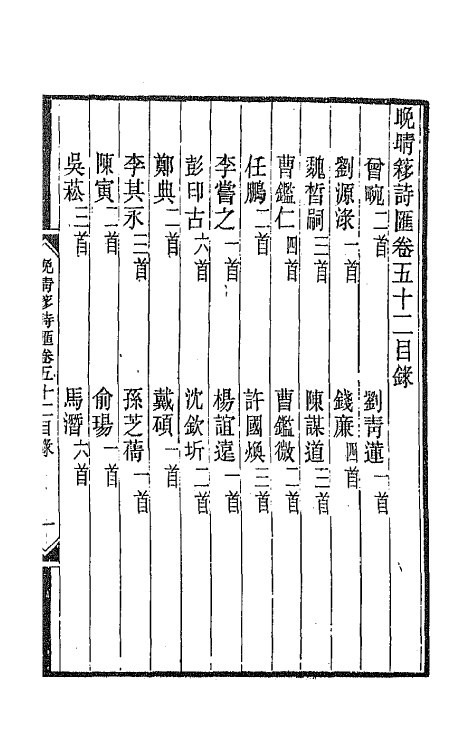 晚晴簃詩匯卷五十二目錄
曾畹二首　劉靑蓮一首
劉源淥一首　錢廉四首
魏晳嗣三首　陳謀道三首
曹鑑仁四首　曹鑑微二首
任鵬二首　許國煥三首
李嘗之一首　楊誼遠一首
彭印古六首　沈欽圻二首
鄭典二首　戴碩一首
李其永三首　孫芝蒨一首
陳寅二首　俞瑒一首
吳菘三首　馬潛六首
晚晴簃詩匯卷五十二目錄　一